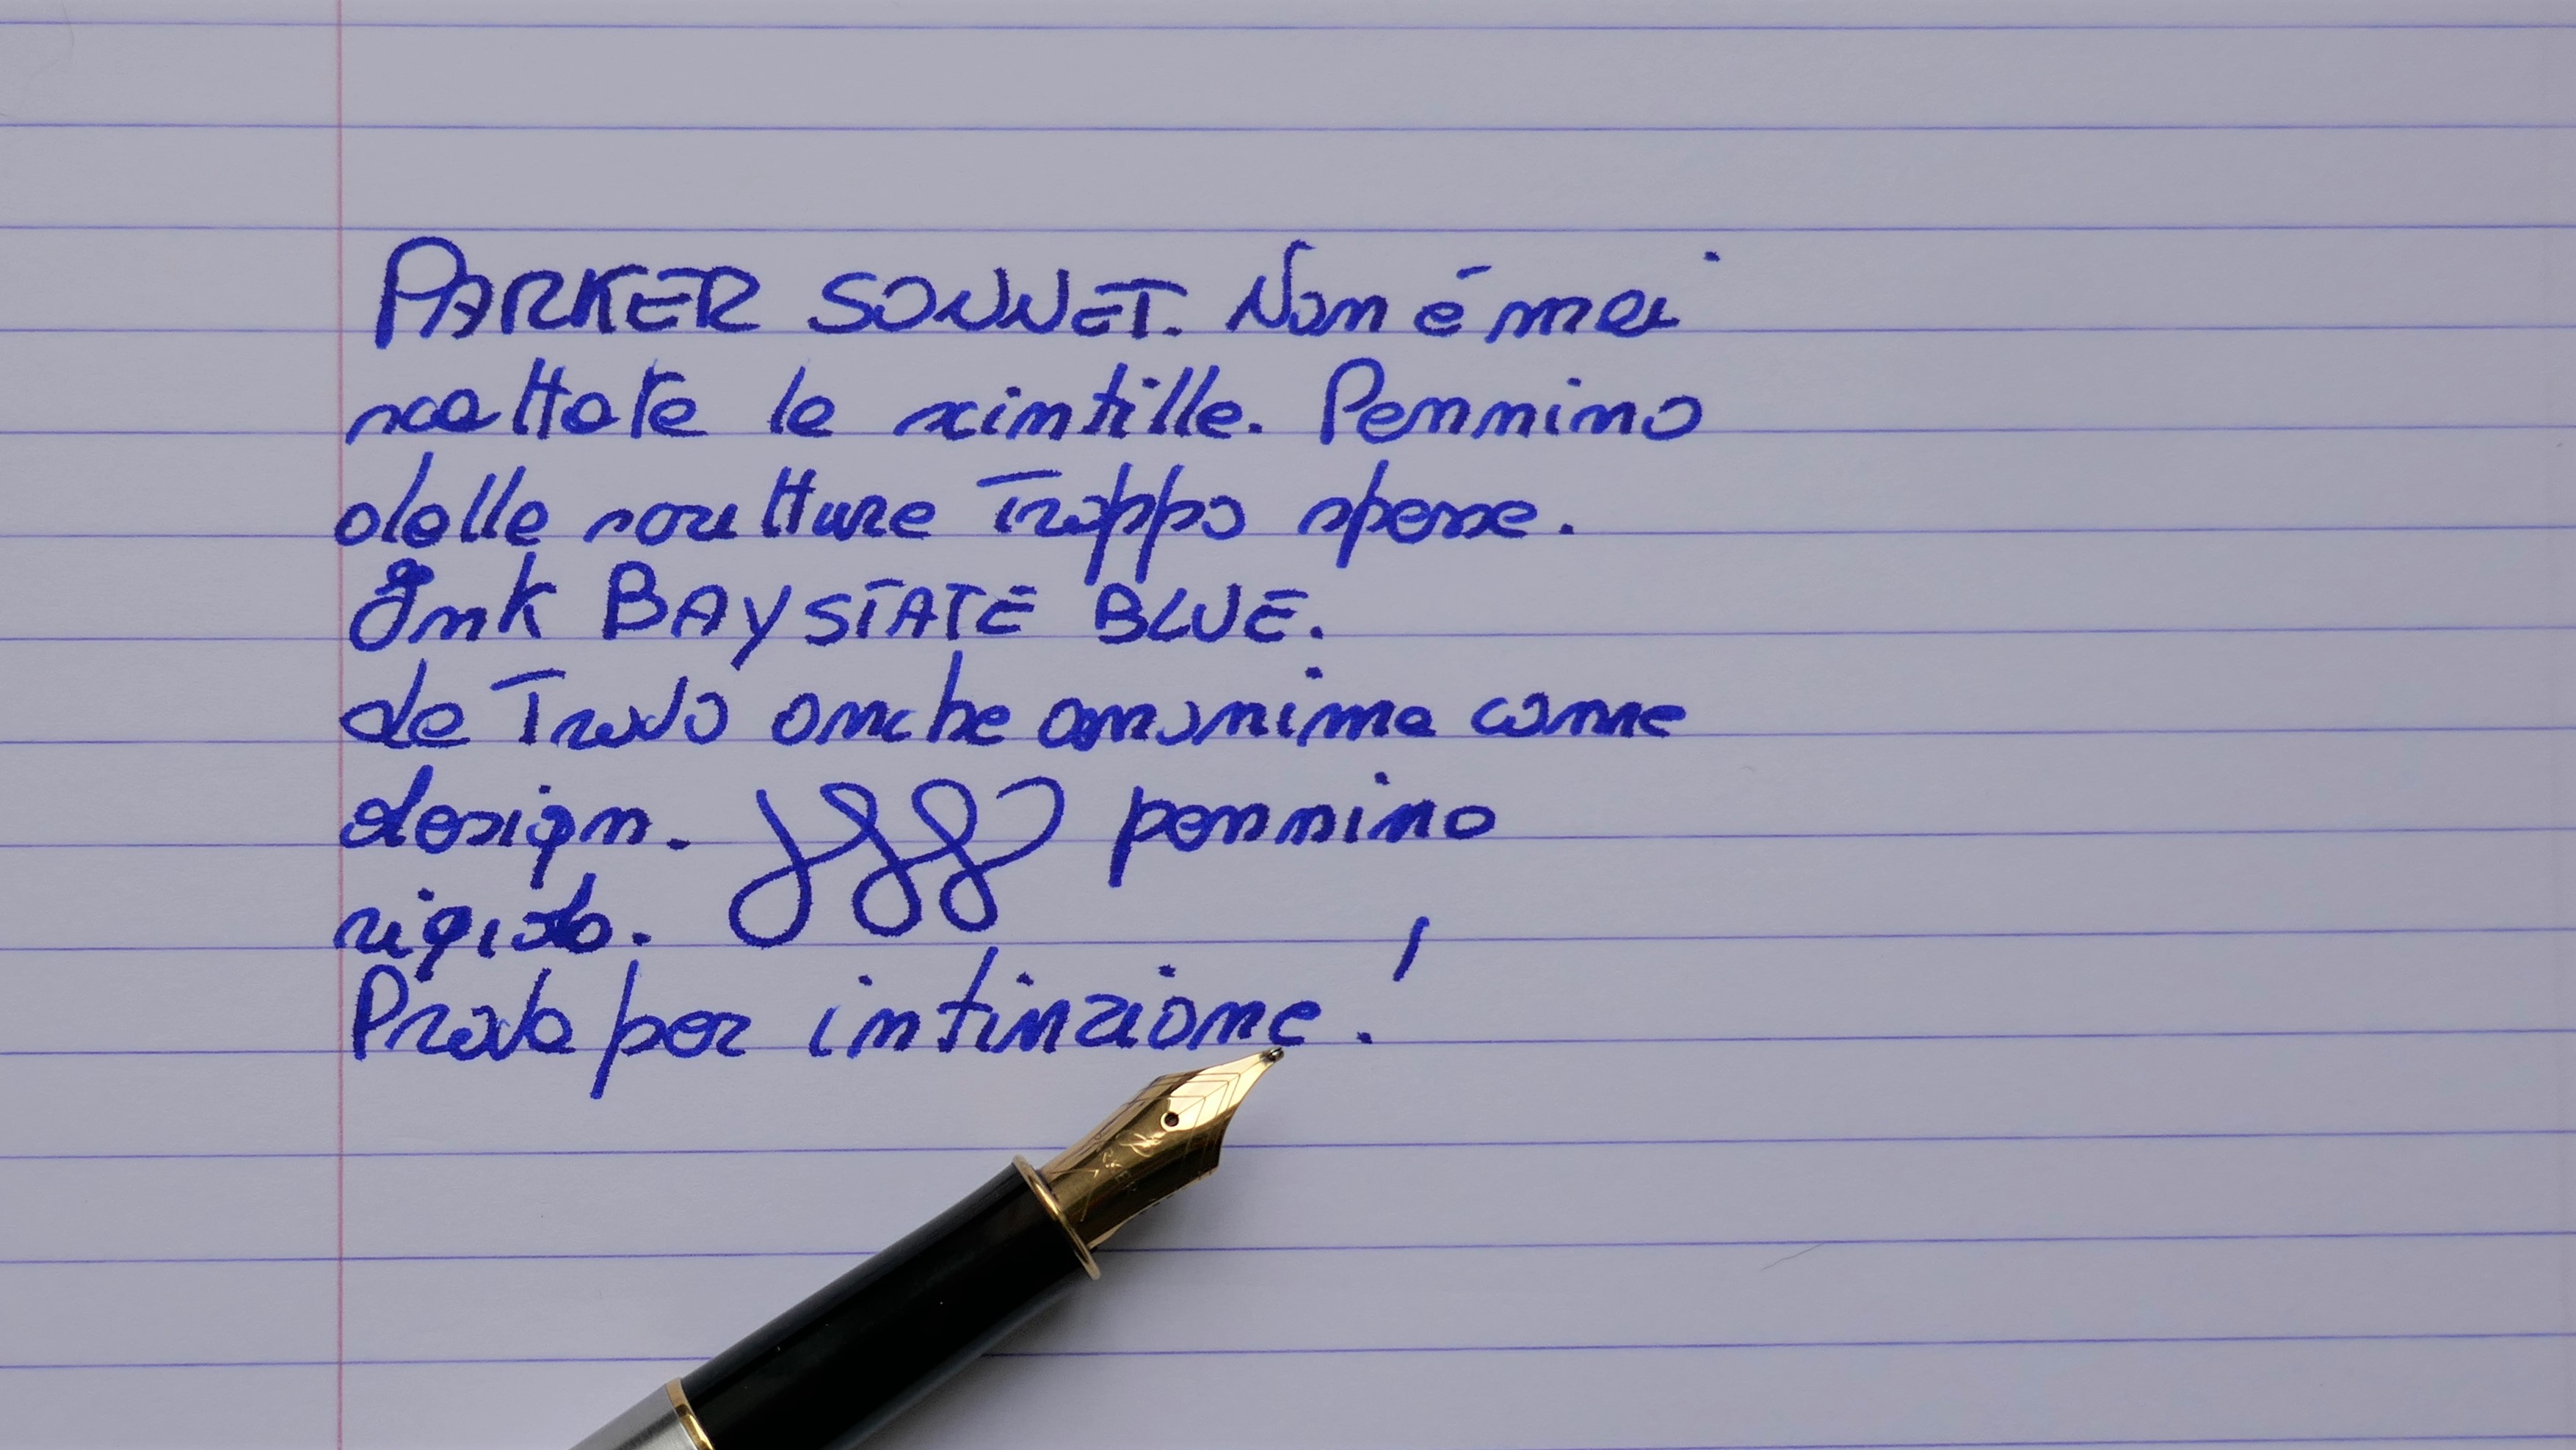 PARKER SONNET. Non é mai
scattate le scintille. Pennino
dalle scritture troppo spesse.
Ink BAYSTATE BLUE.
La Trovo anche anonima come
design. pennino
rigido.
Prova per intinzione!